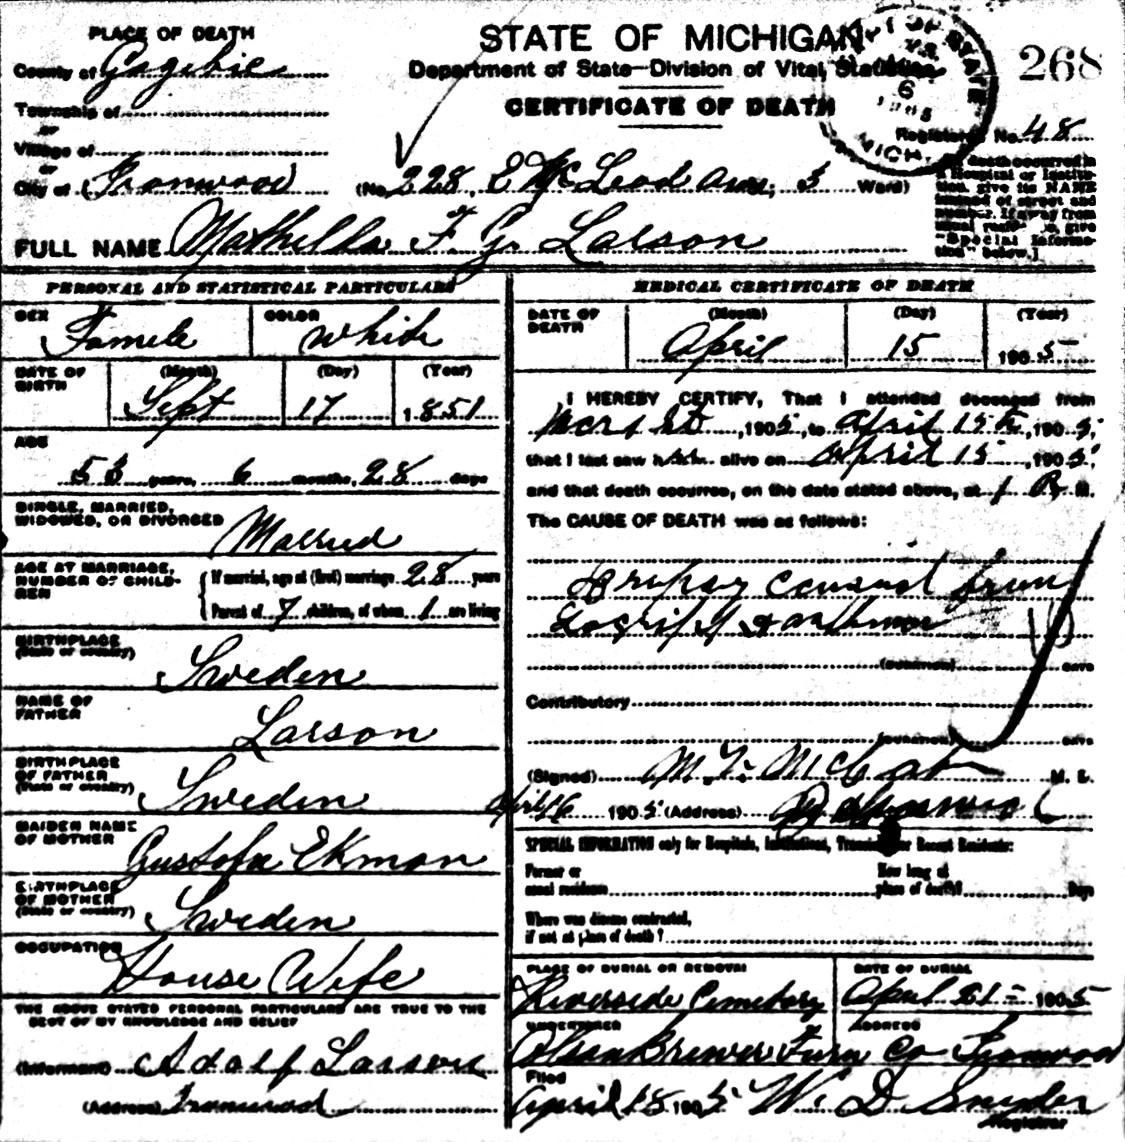 PLACE OF DEATH
County of Gogebic
Township of
or
Village of
or
City of Ironwood
STATE OF MICHIGAN
Department of State—Division of Vital Statistics
CERTIFICATE OF DEATH
268
Registered No. 48
(No. 228, E Mc Leod Ave; 5 Ward)
[If death occurred in a Hospital or Institution, give its NAME instead of street and number. If away from usual residence, give "Special Information" below.]
FULL NAME Mathilda F. G. Larson
PERSONAL AND STATISTICAL PARTICULARS
SEX Famele
COLOR White
DATE OF BIRTH (Month) Sept (Day) 17 (Year) 1851
AGE
53 years, 6 months, 28 days
SINGLE, MARRIED, WIDOWED, OR DIVORCED Married
AGE AT MARRIAGE, NUMBER OF CHILDREN
If married, age at (first) marriage 28 years
Parent of 7 children, of whom 1 are living
BIRTHPLACE (State or country) Sweden
NAME OF FATHER Larson
BIRTHPLACE OF FATHER (State or country) Sweden
MAIDEN NAME OF MOTHER Gustofa Ekman
BIRTHPLACE OF MOTHER (State or country) Sweden
OCCUPATION House Wife
THE ABOVE STATED PERSONAL PARTICULARS ARE TRUE TO THE BEST OF MY KNOWLEDGE AND BELIEF
(Informant) Adolf Larson
(Address) Ironwood
MEDICAL CERTIFICATE OF DEATH
DATE OF DEATH (Month) April (Day) 15 (Year) 1905
I HEREBY CERTIFY, That I attended deceased from
1905, to April 15th, 1905,
that I last saw her alive on April 15, 1905,
and that death occurred, on the date stated above, at 1 P. M.
The CAUSE OF DEATH was as follows:
Dropsy caused from
(DURATION) DAYS
Contributory
(DURATION) DAYS
(Signed) M. D.
April 16 1905 (Address)
SPECIAL INFORMATION only for Hospitals, Institutions, Transients or Recent Residents:
Former or usual residence
How long at place of death? Days
Where was disease contracted, if not at place of death?
PLACE OF BURIAL OR REMOVAL Riverside Cemetary
DATE OF BURIAL April 21 - 1905
UNDERTAKER Olson Brewer Furn Co
ADDRESS Ironwood
Filed
April 18 1905 W. D. Snyder
Registrar